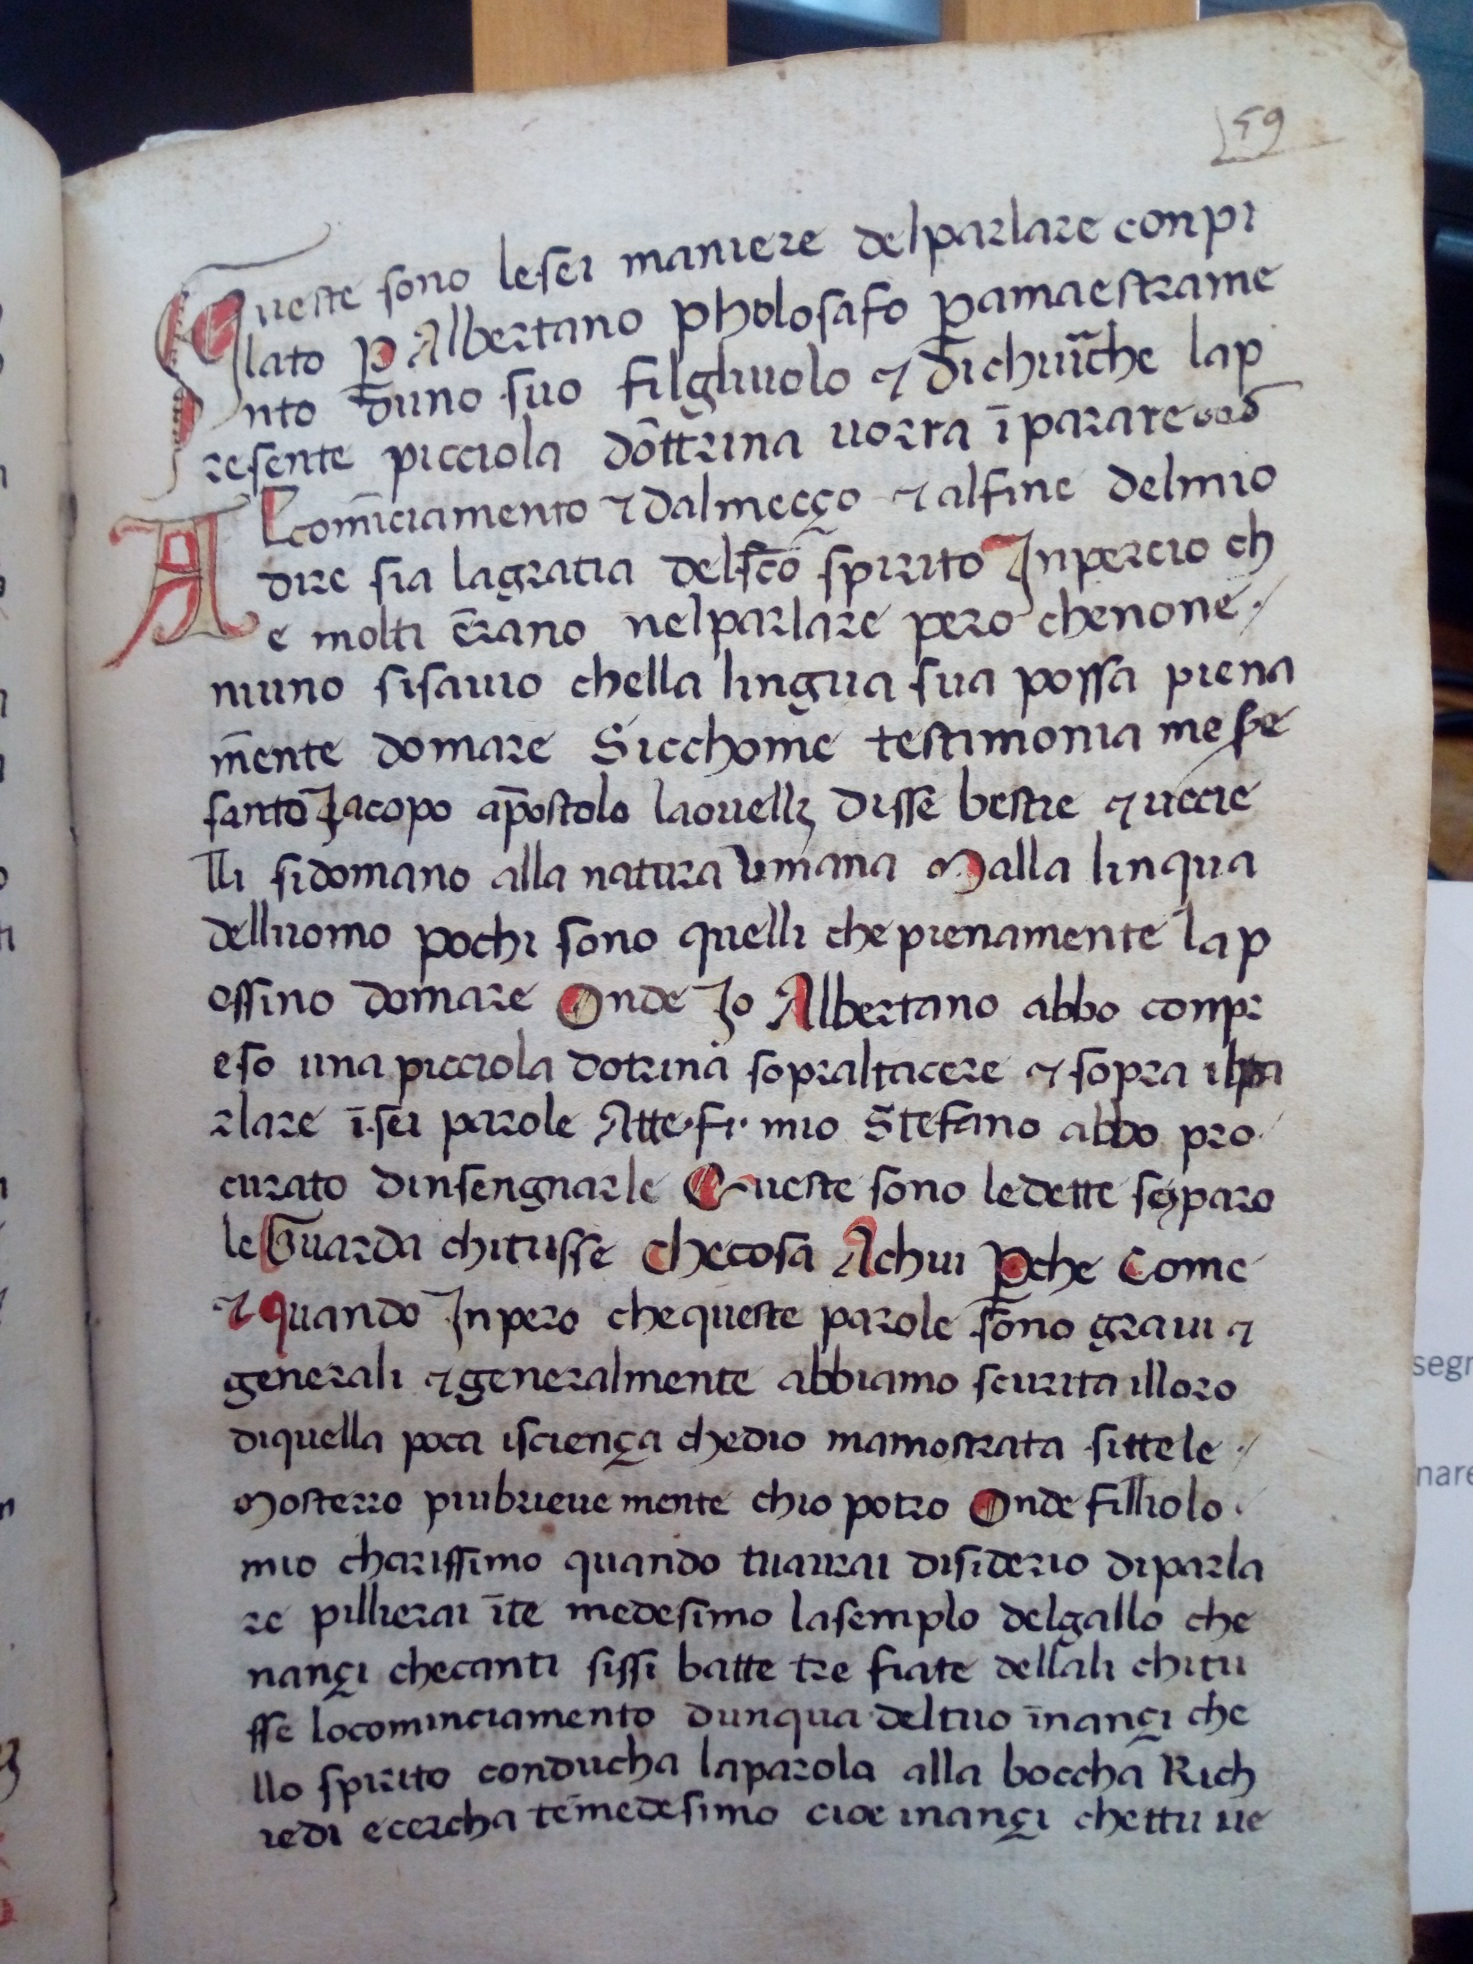 59
Queste sono lesei maniere delparlare conpi
lato p Albertano pholosafo pamaestrame
nto duno suo filghuolo et dichiūche lap
resente picciola dōttrina uorra īparare
Alcomīciamento et dalmecço et alfine delmio
dire sia lagratia delsc̄o spirito Inpercio ch
e molti ērano nelparlare pero chenone
niuno sisauio chella lingua sua possa piena
m̄ente domare Sicchome testimonia messe
santo Jacopo ap̄ostolo laouelli disse bestie et uccie
lli sidomano alla natura Vmana Malla linqua
delluomo pochi sono quelli che pienamente lap
ossino domare Onde Jo Albertano abbo conpr
eso una picciola dotrina sopraltacere et sopra ilpa
rlare ī sei parole Atte·fi·mio Stefano abbo pro
curato dinsengnarle Queste sono ledette sei paro
le Guarda chitusse checosa Achui Pche Come
et quando Inpero chequeste parole sono graui et
generali et generalmente abbiamo scurita illoro
diquella poca isciença chedio mamostrata sittele
Mosterro piubrieue mente chio potro Onde filliolo
mio charissimo quando tuaurai disiderio diparla
re pillierai īte medesimo lasemplo delgallo che
nançi checanti sissi batte tre fiate dellali chitu
sse locominciamento dunqua deltuo īnançi che
llo spirito conducha laparola alla boccha Rich
iedi ecercha temedesimo cioe inançi chettu ue
segn
nare